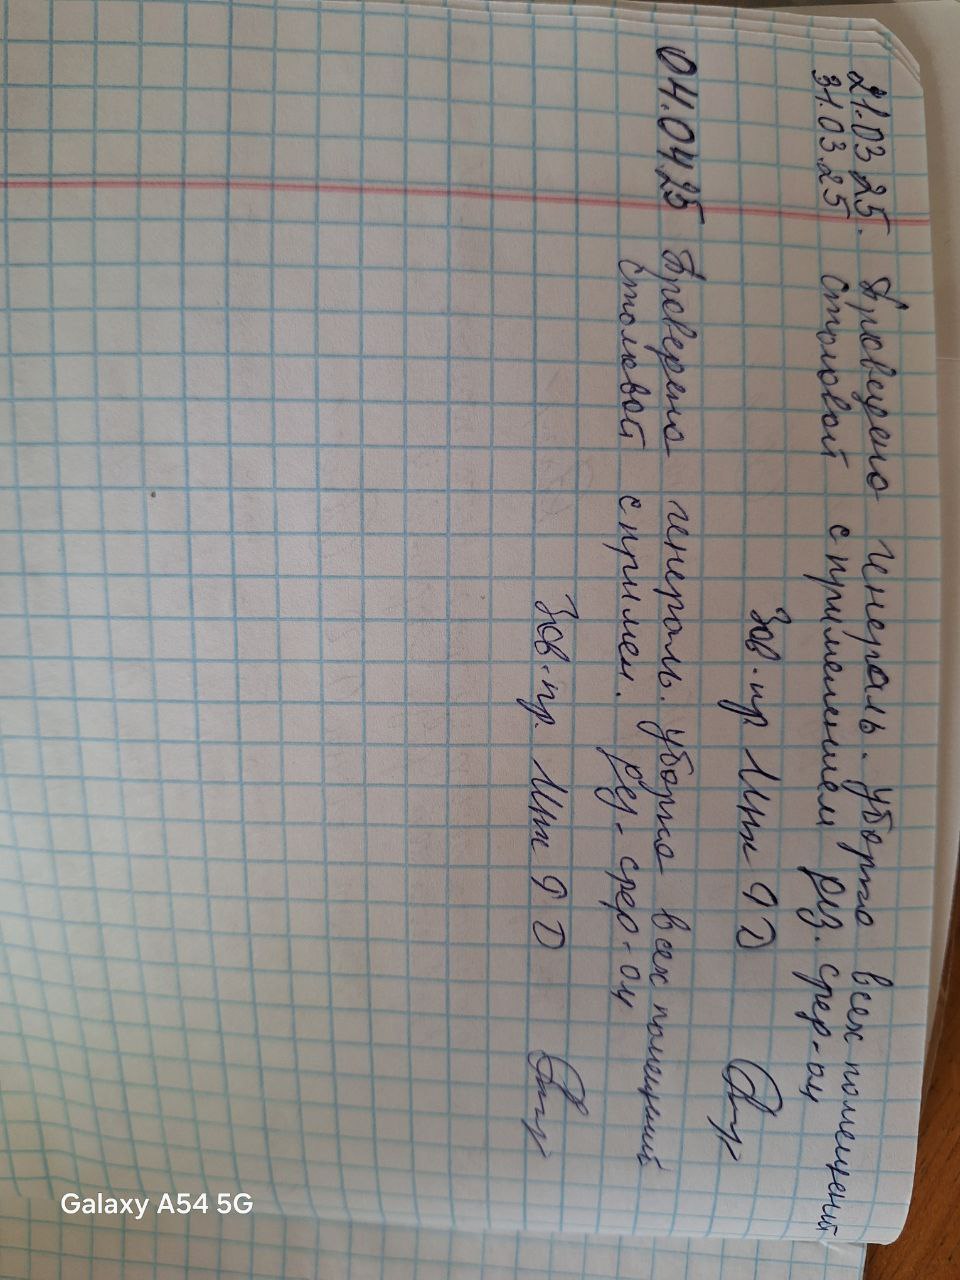 21.03 25. Проведено генераль. уборка всех помещений
31.03.25 столовой с применением дез. сред-ом
Зав. пр.
04.04.25 Проверено генераль. уборка всех помещений
столовой с примен. дез. сред-ом
Зав. пр.
Galaxy A54 5G